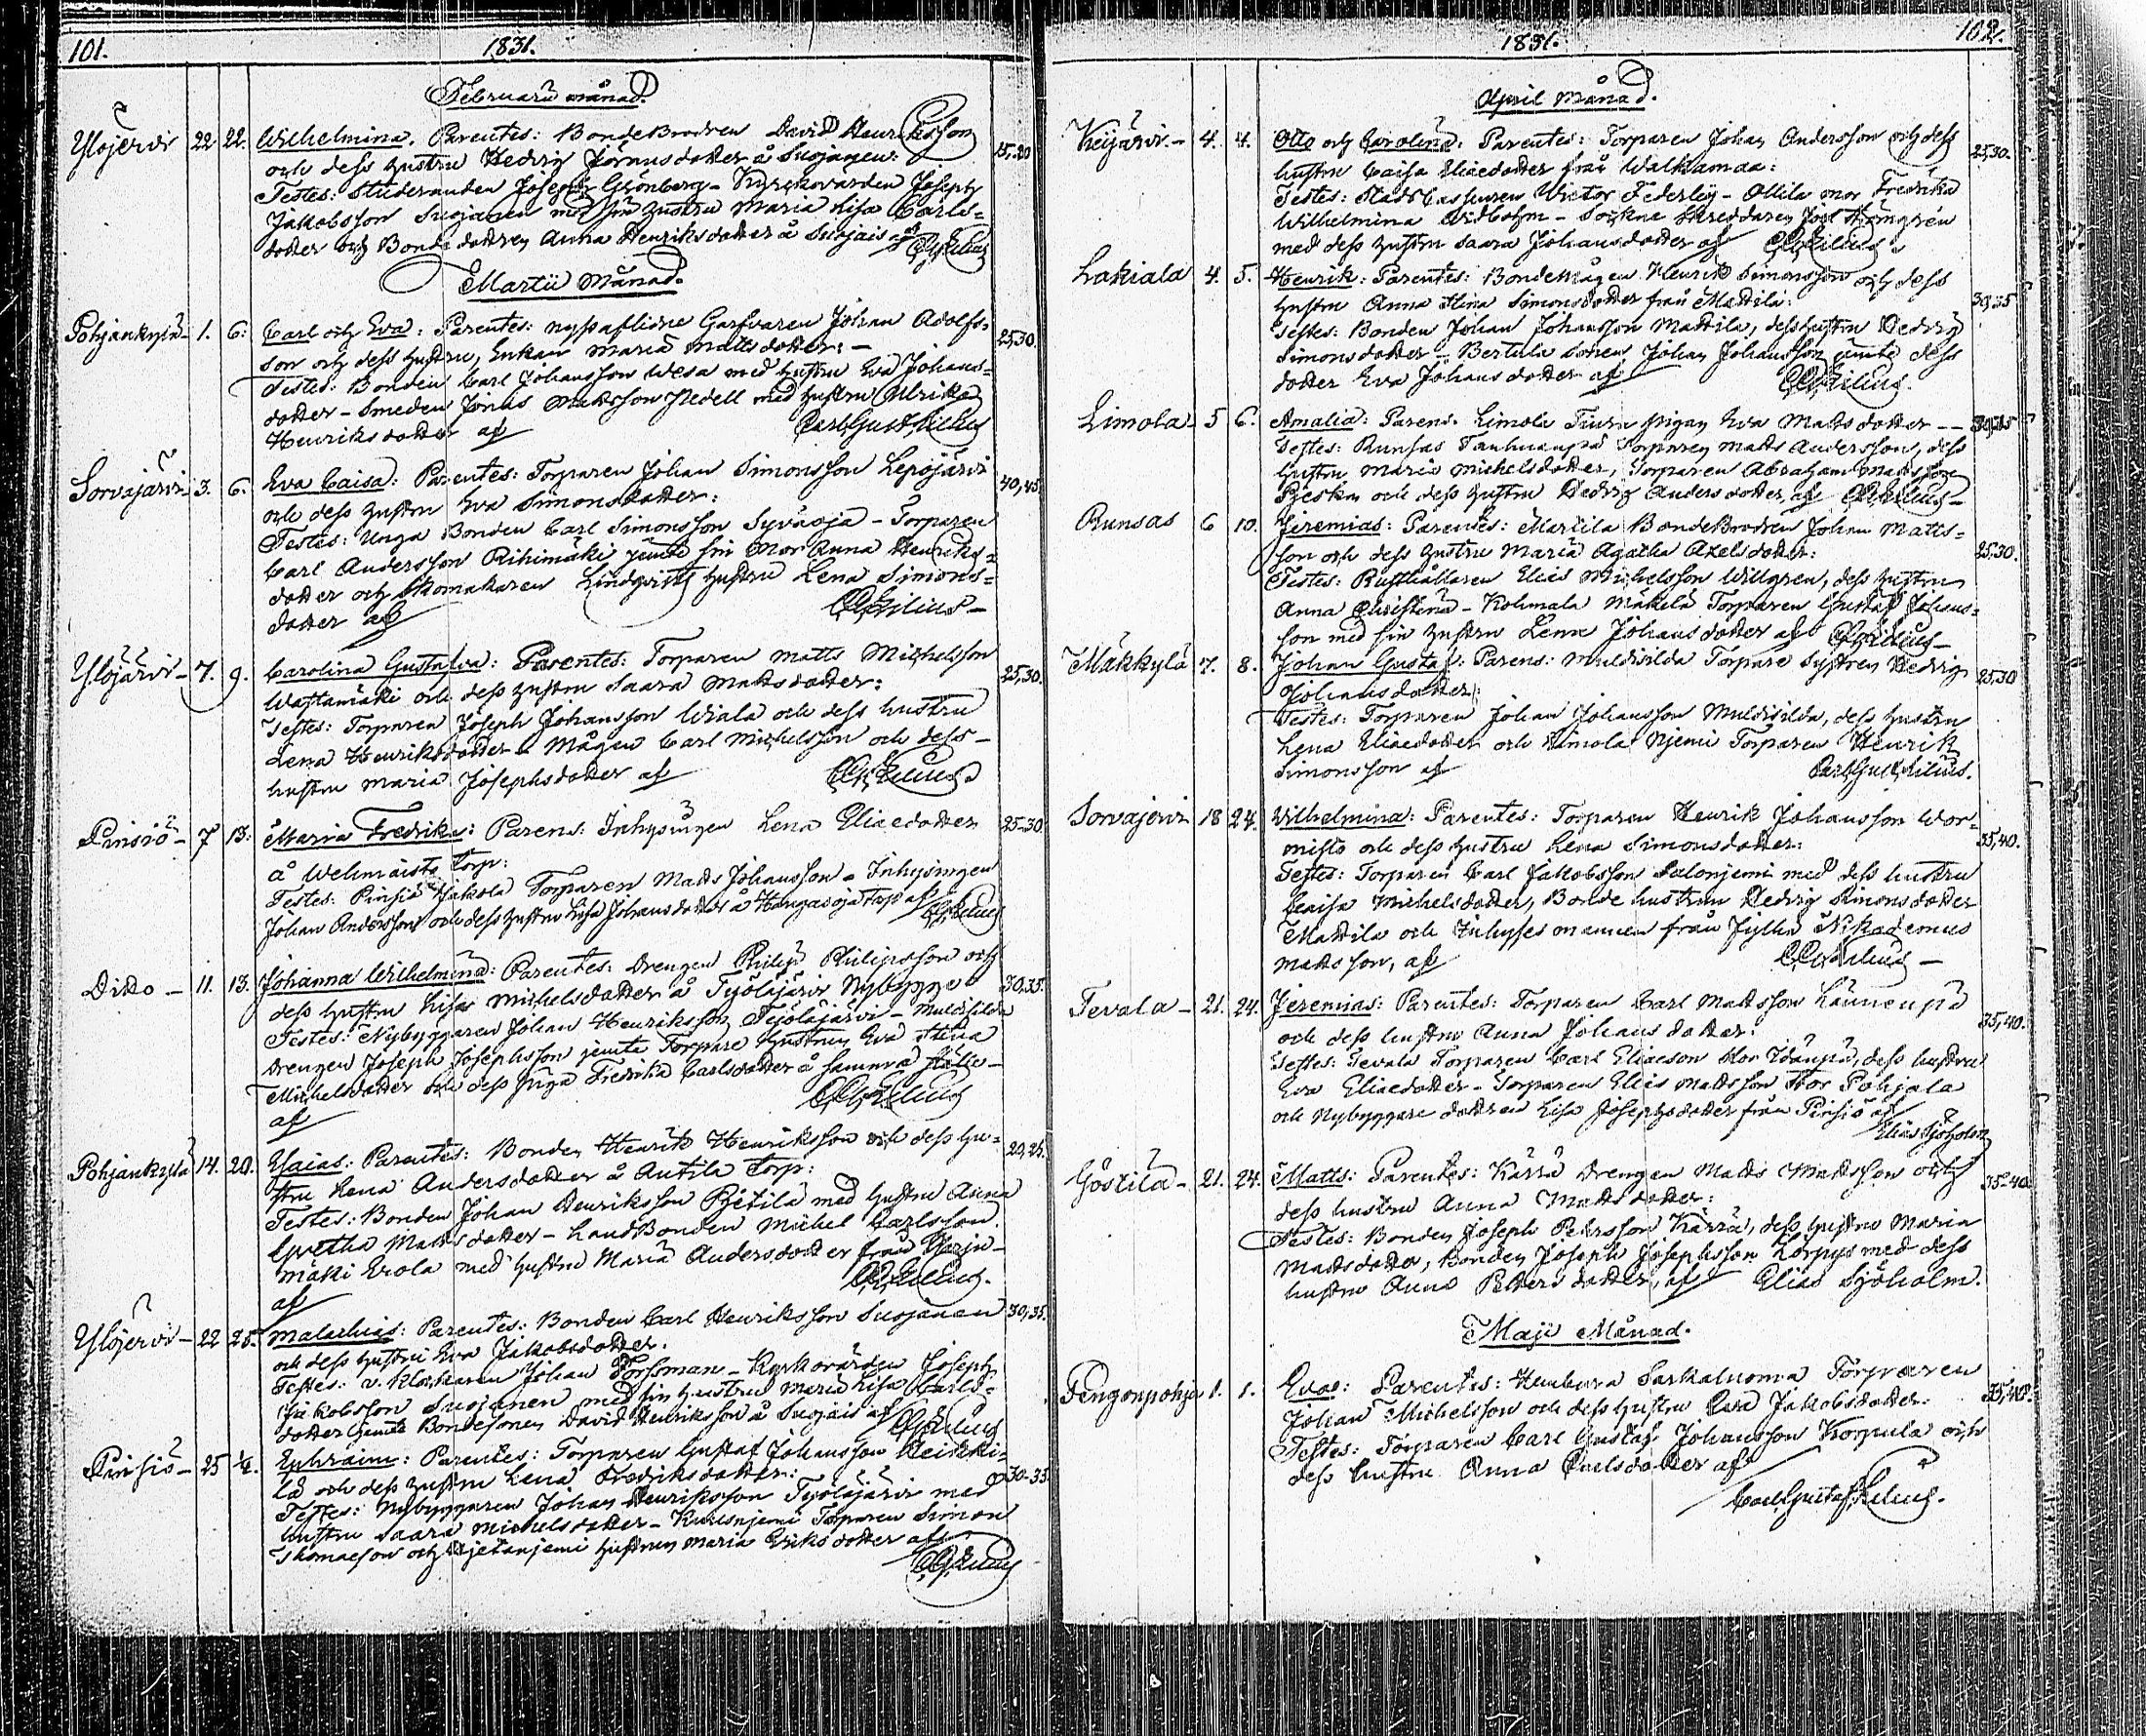 101.
1831.
Februarii månad.
Ylöjervi 22 22. Wilhelmina. Parentes: Bonde Brodren David Henriksson 15-20
och dess hustru Hedvig Jöransdotter å Suojanen:
Testes: Studeranden Joseph Grönberg - Kyrkovärden Joseph
Jakobsson Suojanen med sin hustru Maria Lisa Carls=
dotter och Bonde dottren Anna Henriksdotter å Suojais af
Martii Månad.
Pohjankylä 1. 6. Carl och Eva: Parentes: Johan Adolfs= 25,30.
son och dess hustru, Enkan Maria Mattsdotter: -
Testes: Bonden Carl Johansson Wesa med hustru Eva Johans=
dotter - Smeden Jonas Mattsson med hustru Ulrika
Henriksdotter af
Sorvajärvi 3. 6. Eva Caisa: Parentes: Torparen Johan Simonsson Lepojärvi 40,45
och dess hustru Eva Simonsdotter:
Testes: Unga Bonden Carl Simonsson Syväoja - Torparen
Carl Andersson Rihimäki jemte sin Mor Anna Henriks=
dotter och Skomakaren Lindqvists hustru Lena Simons=
dotter af
Ylöjärvi 7. 9. Carolina Gustafva: Parentes: Torparen Matts Michelsson 25,30.
Wastamäki och dess hustru Saara Mattsdotter:
Testes: Torparen Joseph Johansson Wiala och dess hustru
Lena Henriksdotter - Mågen Carl Michelsson och dess
hustru Maria Josephsdotter af
Pinsiö 7 13. Maria Fredrika: Parens: Inhysingen Lena Eliaedotter 25-30
å Wehmäistö Torp:
Testes: Pinsiö Torparen Matts Johansson - Inhysingen
Johan Andersson och dess hustru Lisa Johansdotter å Hangasoja Torp af
Dito 11. 13. Johanna Wilhelmina: Parentes: Drengen Philip Philipsson och 30,35.
dess hustru Lisa Michelsdotter å Työläjärvi Nybygge
Testes: Nybyggaren Johan Henriksson Työläjärvi - Muldisilda
Drengen Joseph Josephsson jemte Torpare hustrun Eva Stina
Michelsdotter och dess piga Fredrika Carlsdotter å samma ställe -
af
Pohjankylä 14. 20. Esaias: Parentes: Bonden Henrik Henriksson och dess hu= 20,25.
stru Lena Andersdotter å Antila Torp:
Testes: Bonden Johan Henriksson Pietilä med hustru Anna
Gretha Mattsdotter - Landbonden Michel Carlsson
mäki Erola med hustru Maria Andersdotter från
af
Ylöjervi 22 25. Malachias: Parentes: Bonden Carl Henriksson Suojanen 30,35
och dess hustru Eva Jakobsdotter.
Testes: v. Klockaren Johan Forssman - Kyrkovärden Joseph
Jakobsson Suojanen med sin hustru Maria Lisa Carls=
dotter jemte Bondesonen David Henriksson å Suojais af
Pinsiö 25 Ephraim: Parentes: Torparen Gustaf Johansson Heickki= 30-35
lä och dess hustru Lena Fredriksdotter:
Testes: Nybyggaren Johan Henriksson Tyoläjärvi med
hustru Saara Michelsdotter - Kurisnjemi Torparen Simon
Thomaeson och hustrun Maria Eriksdotter af
1831. 102.
April Månad.
Keijärvi 4. 4. Otto och Carolina. Parentes: Torparen Johan Andersson och dess 25,30.
hustru Caisa Eliaedotter från Walkamaa:
Testes: Victor Federley - Fredrika
Wilhelmina Widbohm - Sockne Skreddaren
med dess hustru Saara Johansdotter af
Lakiala 4. 5. Henrik: Parentes: Bondemågen Henrik Simonsson och dess 30,35
hustru Anna Stina Simonsdotter från Mattila:
Testes: Bonden Johan Johansson Mattila, dess hustru Hedvig
Simonsdotter - Bertula sonen Johan Johansson jemte dess
dotter Eva Johansdotter af
Limola 5 6. Amalia: Parens. Limola pigan Eva Matts dotter --
Testes: Runsas Torparen Matts Andersson, dess
hustru Maria Michelsdotter, Torparen Abraham Mattsson
och dess hustru Hedvig Anders dotter, af
Runsas 6 10. Jeremias: Parentes: Martila Bonde Brodren Johan Matts= 25,30.
son och dess hustru Maria Agatha Axelsdotter:
Testes: Rusthållaren Elias Michelsson Willgren, dess hustru
Anna Christina - Kohmala Mäkelä Torparen Gustaf Johans=
son med sin hustru Lena Johansdotter af
Mäkkylä 7. 8. Johan Gustaf: Parens: Muldisilda Torpare Systren Hedvig 25,30
Johansdotter:
Testes: Torparen Johan Johansson Muldisilda, dess hustru
Lena Eliaedotter och Simola Njemi Torparen Henrik
Simonsson af
Sorvajervi 18 24. Wilhelmina: Parentes: Torparen Henrik Johansson Wor= 35,40.
misto och dess hustru Lena Simonsdotter:
Testes: Torparen Carl Jakobsson Salonjemi med dess hustru
Caisa Michelsdotter, Bonde hustrun Hedvig Simonsdotter
Mattila och Inhysesmannen från Nikodemus
Mattsson, af
Tevala 21. 24. Jeremias: Parentes: Torparen Carl Mattsson Lännenpä 35,40.
och dess hustru Anna Johansdotter:
Testes: Tevala Torparen Carl Eliaeson, dess hustru
Eva Eliaedotter - Torparen Elias Mattsson Pohjala
och Nybyggare dottren Lisa Josephsdotter från Pinsiö af
Elias Sjöholm
Göstilä 21. 24. Matts: Parentes: Kärrä Drengen Matts Mattsson och 35-40.
dess hustru Anna Mattsdotter:
Testes: Bonden Joseph Petersson Kärrä, dess hustru Maria
Mattsdotter, Bonden Joseph Josephsson Korpus med dess
hustru Anna Petters dotter, af Elias Sjöholm.
Maji Månad.
Tengonpohja 1. 1. Eva: Parentes: Sarkaluoma Torparen 35,40.
Johan Michelsson och dess hustru Eva Jakobsdotter.
Testes: Torparen Carl Gustaf Johansson Korpula och
dess hustru Anna dotter af